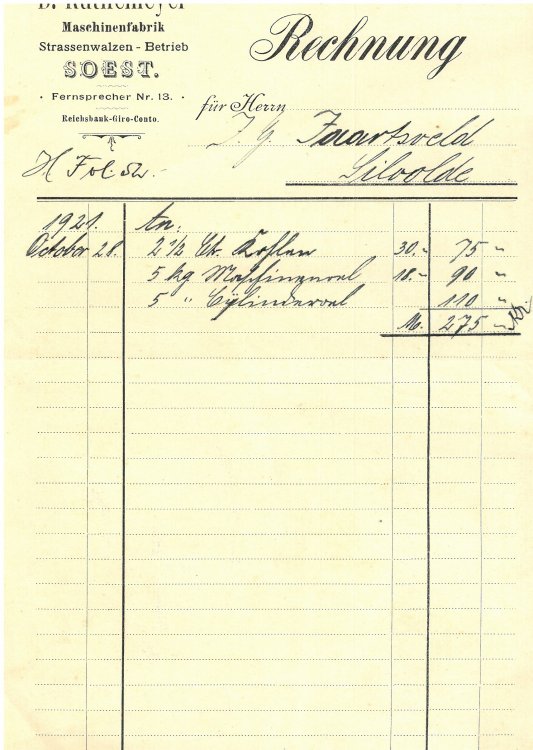 B. Ruthemeyer
Maschinenfabrik
Strassenwalzen - Betrieb
SOEST.
· Fernsprecher Nr. 13. ·
Reichsbank-Giro-Conto.
Rechnung
für Herrn
J. G. Zaartsveld
Silvolde
H Fol. 52.-
1921. An:
October 28. 2 1/2 Ctr. Kohlen 30.- 75 "
5 kg Maschinenoel 18.- 90 "
5 " Cylinderoel 110 "
M. 275 "